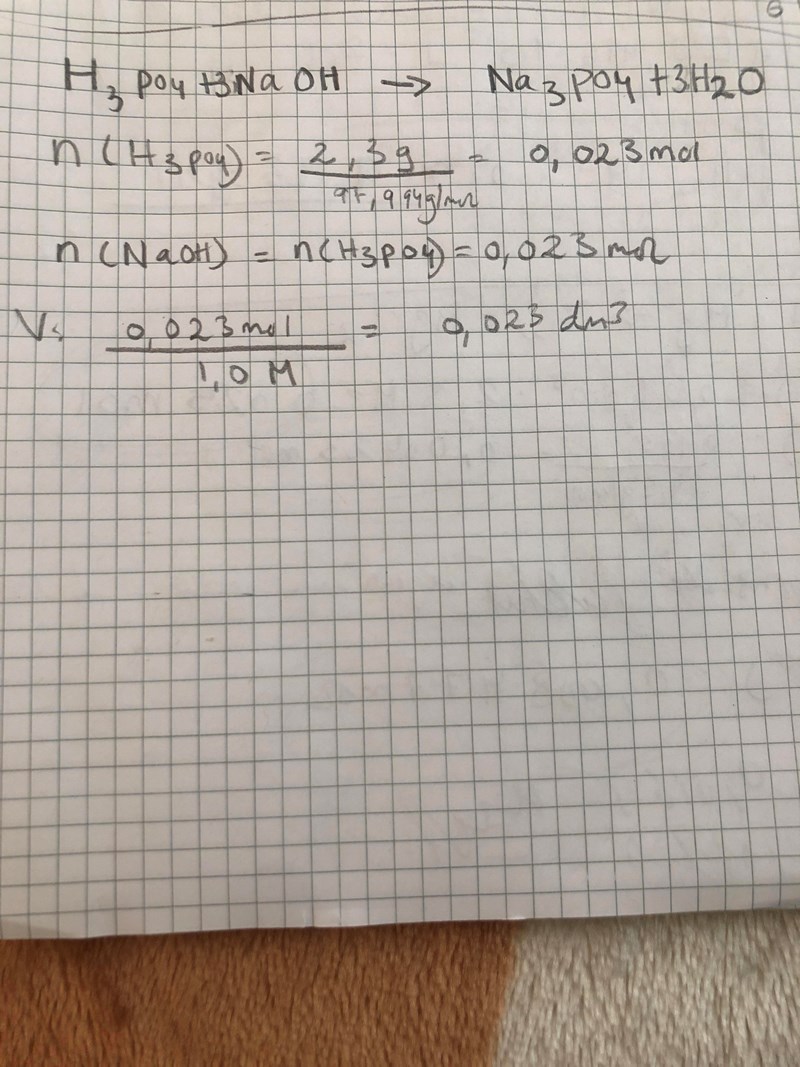 6
H3PO4 + 3NaOH → Na3PO4 + 3H2O
n(H3PO4) = 2,3g / 97,994g/mol = 0,023 mol
n(NaOH) = n(H3PO4) = 0,023 mol
V: 0,023 mol / 1,0 M = 0,023 dm3